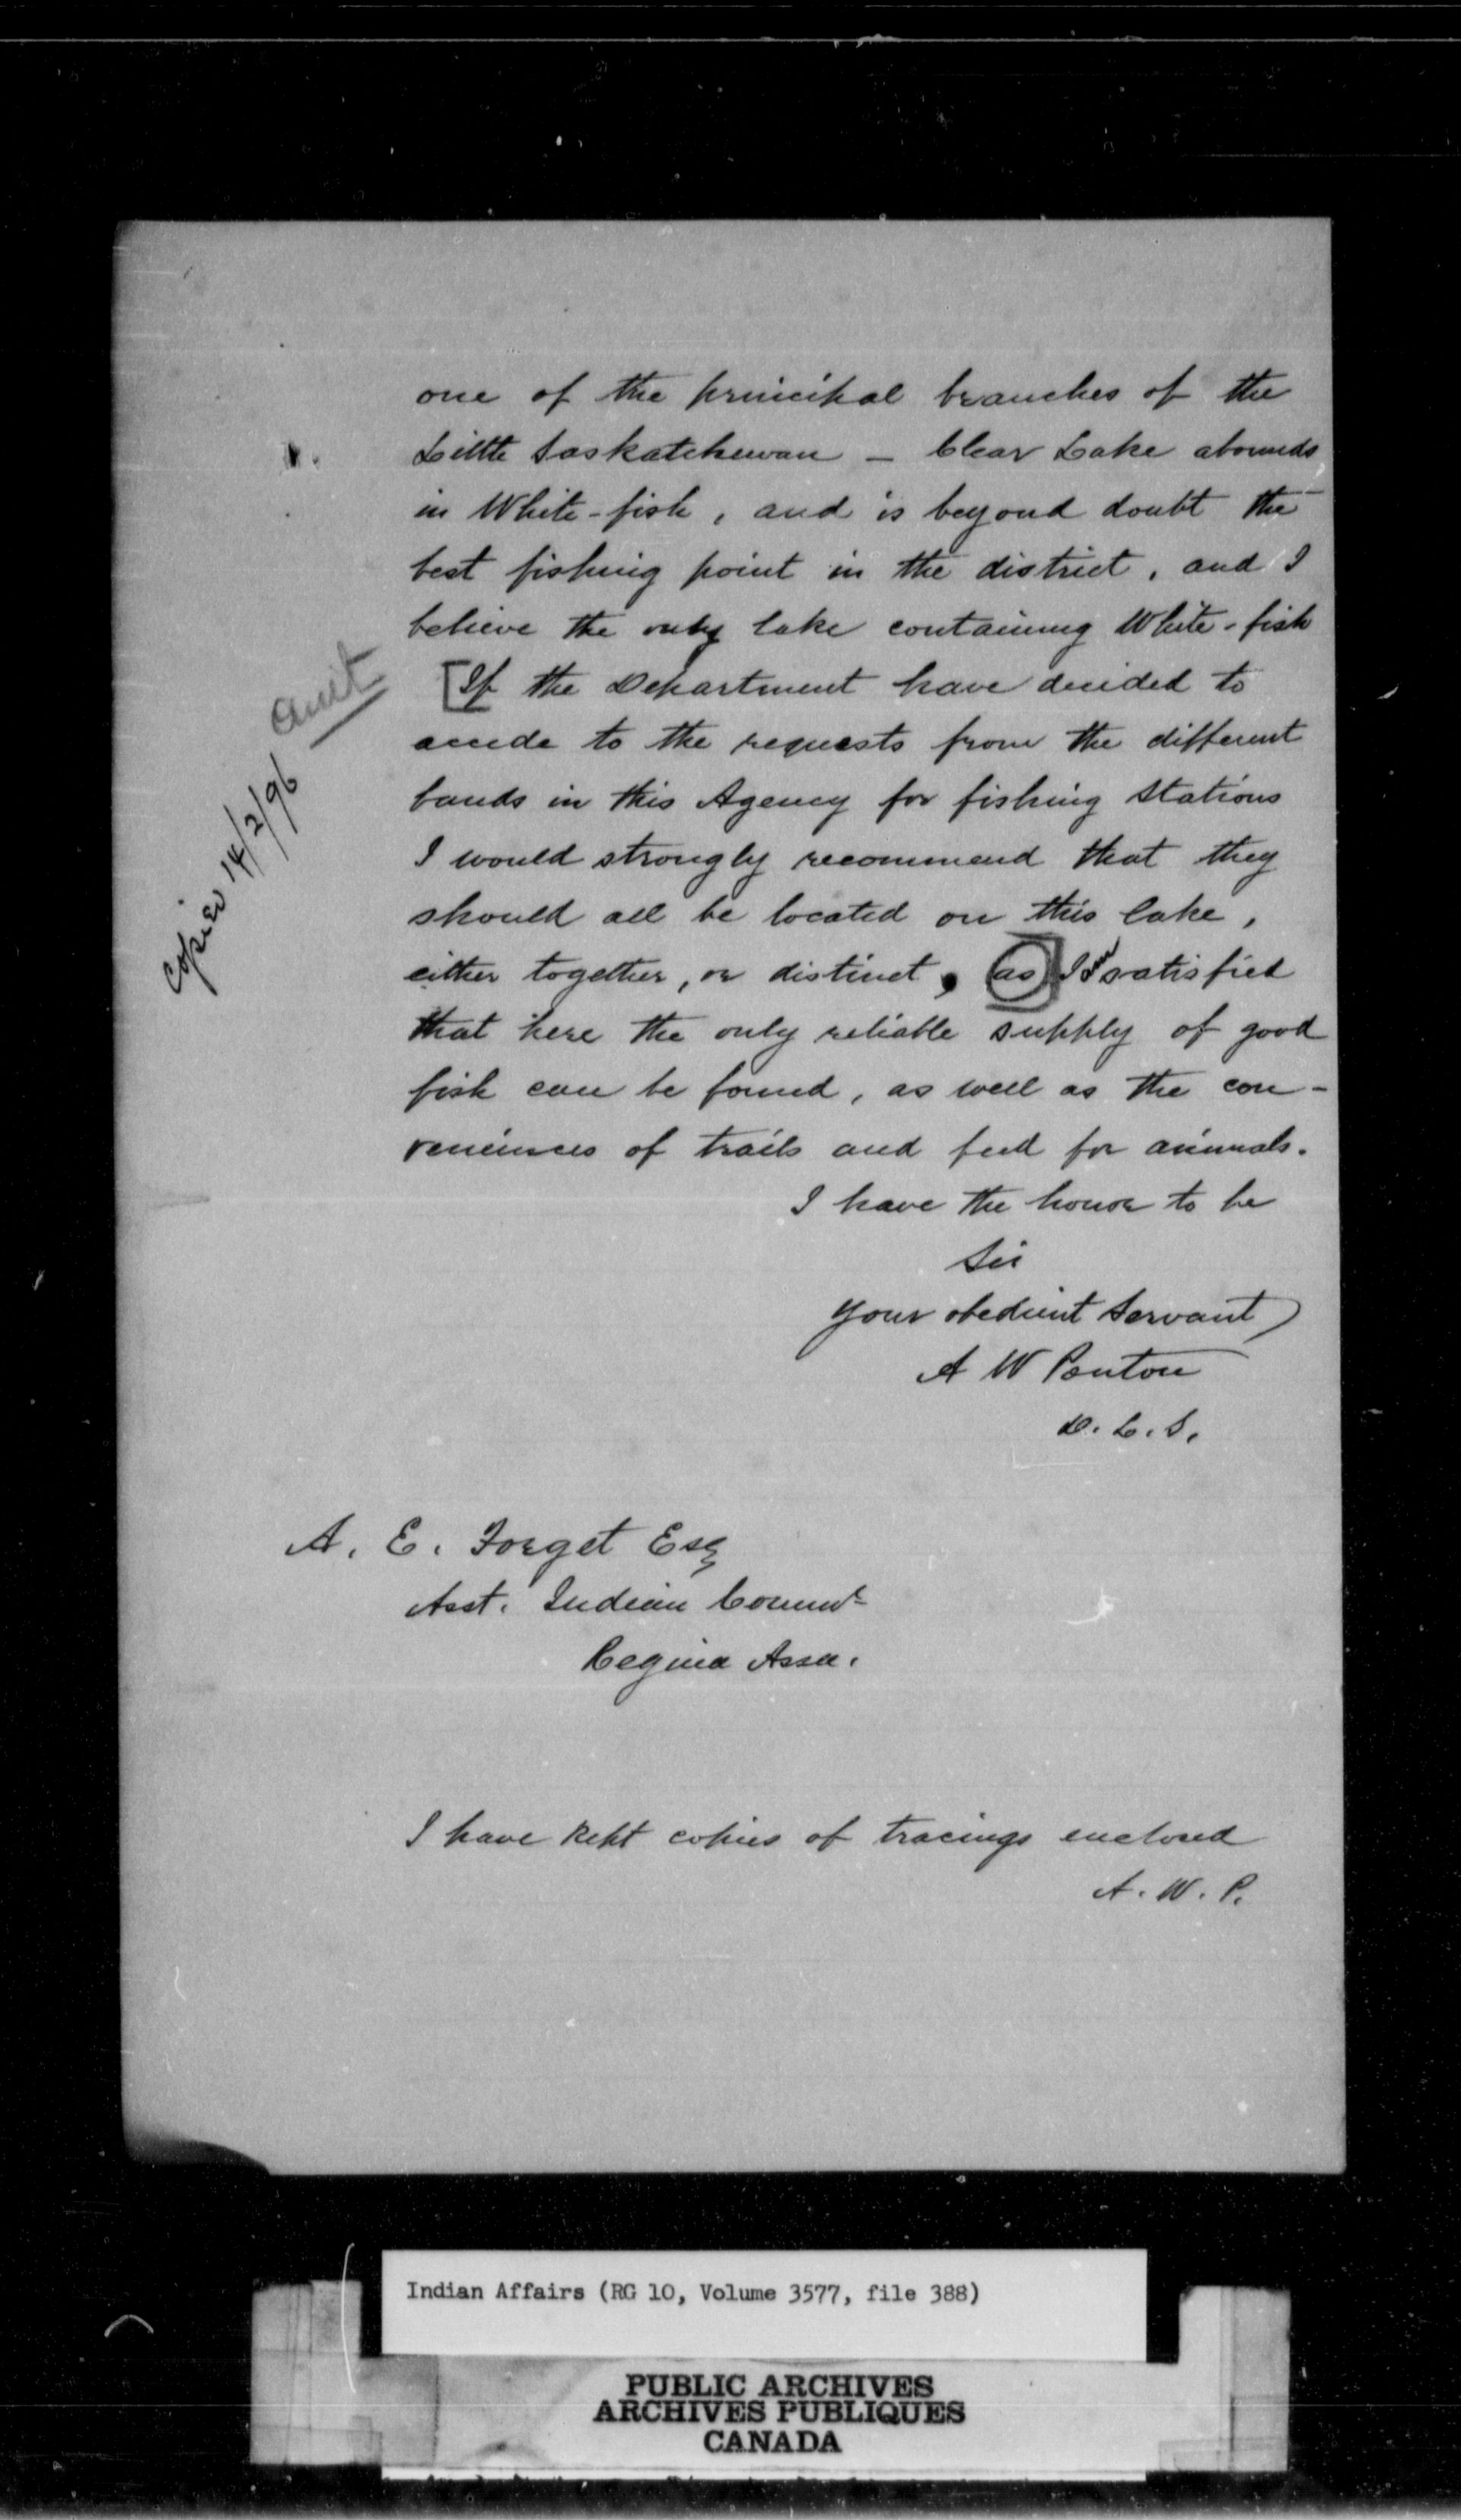 one of the principal branches of the
Little Saskatchewan – Clear Lake abounds
in White-fish, and is beyond doubt the
best fishing point in the district, and I
believe the only lake containing White-fish
[If the Department have decided to
accede to the requests from the different
bands in this Agency for fishing stations
I would strongly recommend that they
should all be located on this lake,
either together, or distinct, as I satisfied
that here the only reliable supply of good
fish can be found, as well as the con-
veniences of trails and feed for animals.
I have the honor to be
Sir
Your obedient Servant
A W Ponton
D. L. S.
omit
copied 14/2/96
A. E. Forget Esq
Asst. Indian Commr
Regina Assa.
I have kept copies of tracings enclosed
A. W. P.
Indian Affairs (RG 10, Volume 3577, file 388)
PUBLIC ARCHIVES
ARCHIVES PUBLIQUES
CANADA